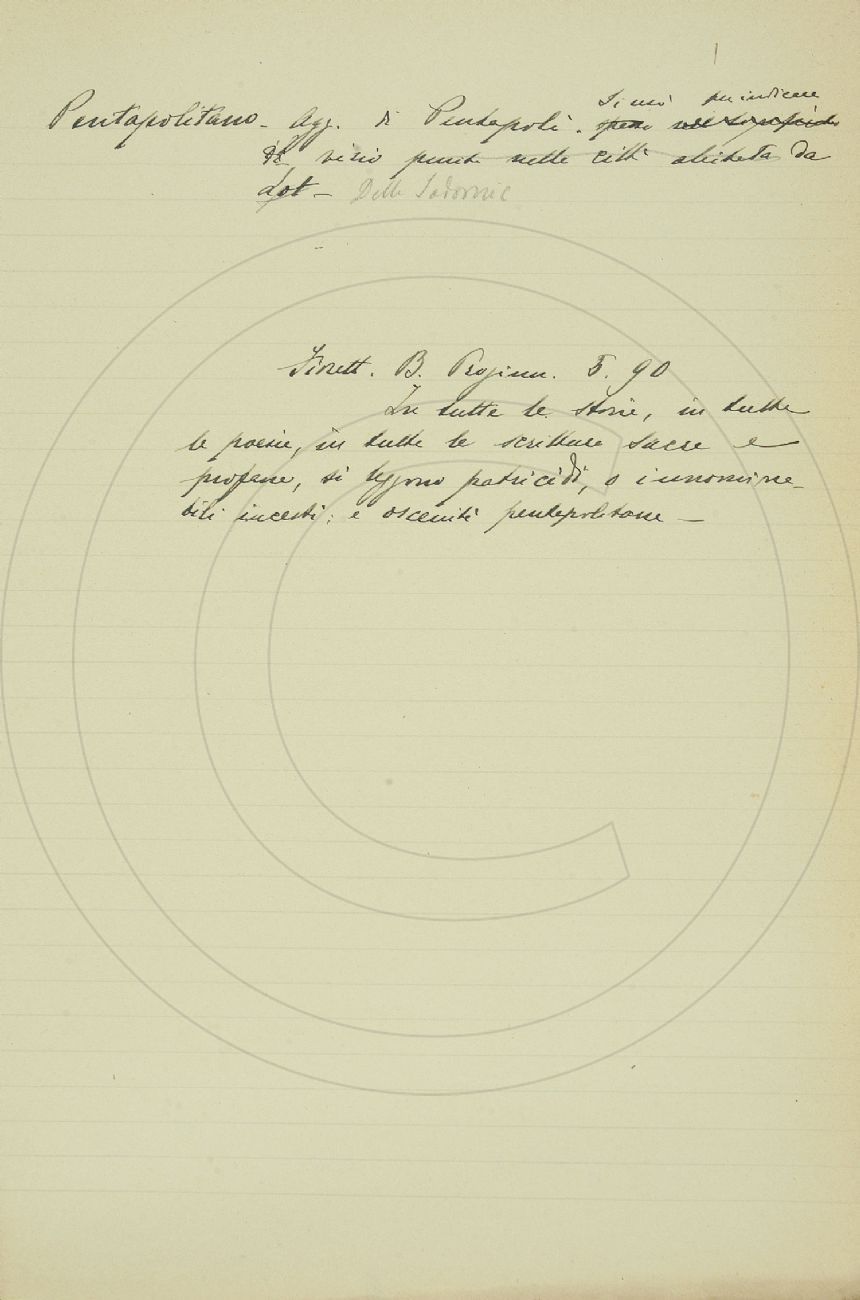 Si usò per indicare
Pentapolitano - Agg. di Pentapoli. spesso nel significato
di vizio punito nelle città abitata da
Lot - Delle Sodomie
Fiorett. B. Proginn. 5. 90
In tutte le storie, in tutte
le poesie, in tutte le scritture sacre e
profane, si leggono patricidî, o innomina-
bili incesti; e oscenità pentapolitane -